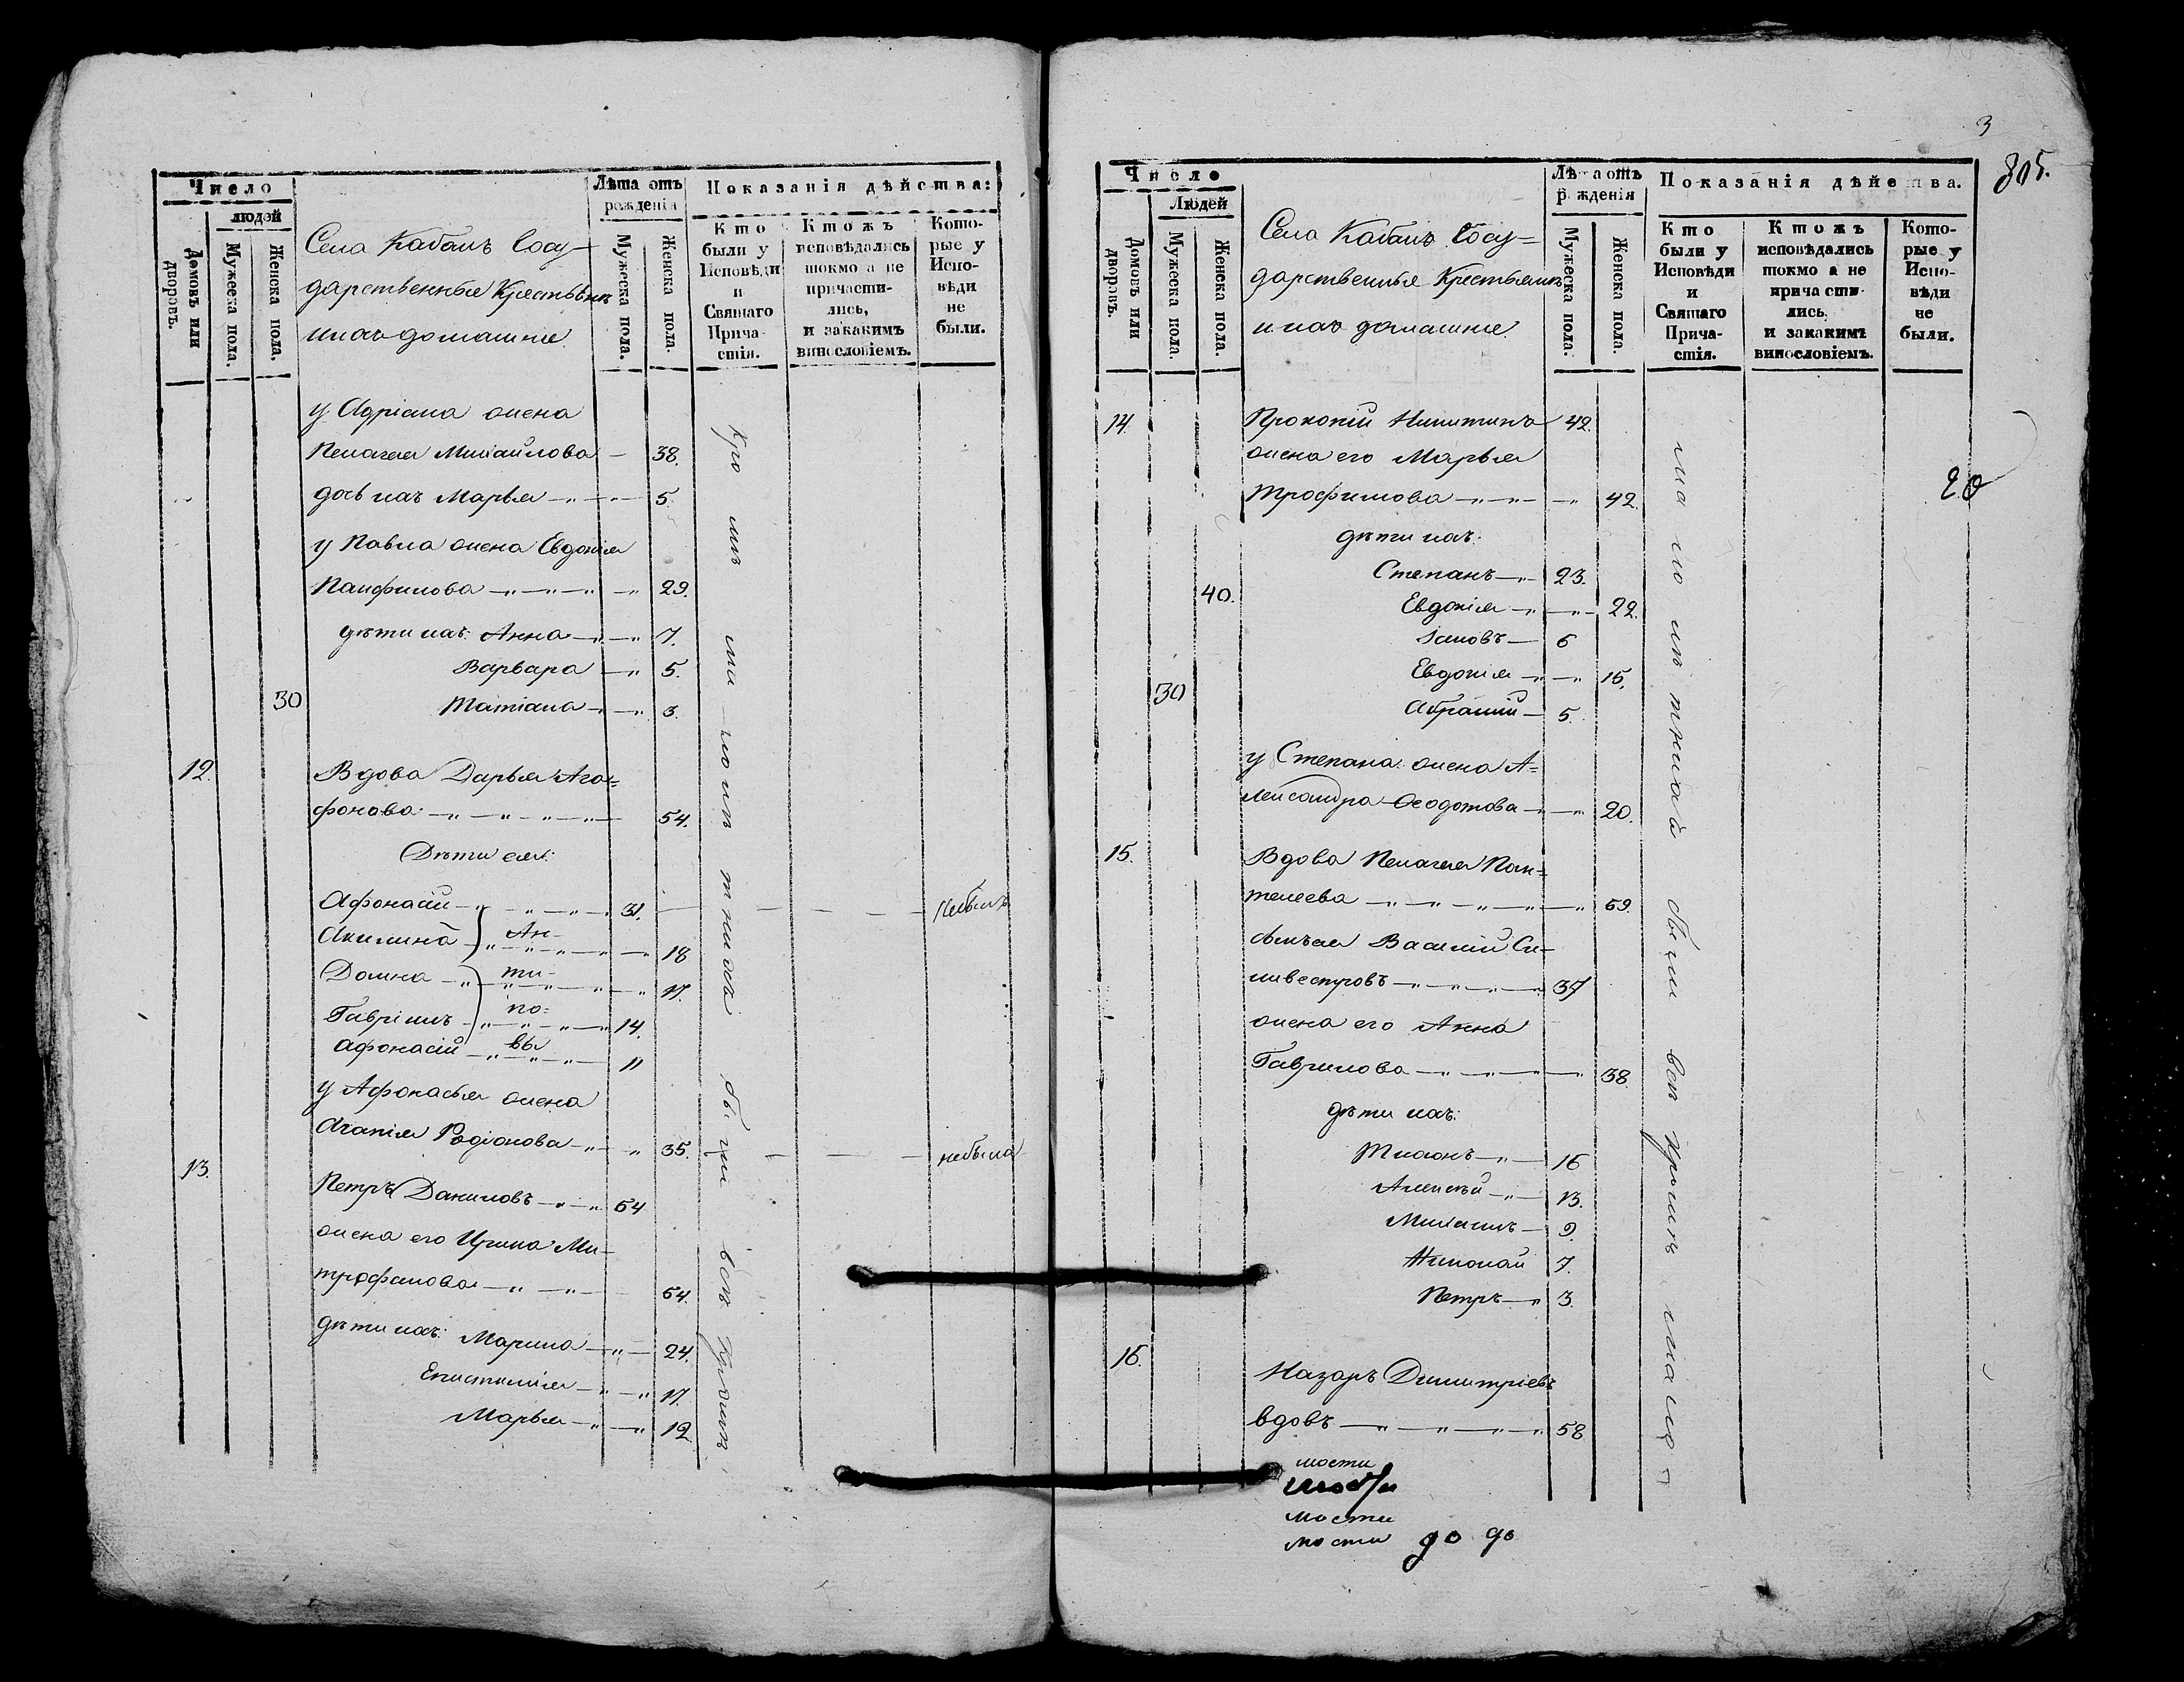 Число
людей
Домовъ или дворовъ.
Мужеска пола.
Женска пола.
Села Кабанъ Госу-
дарственныя Крестьяне
и ихъ домашніе.
Лѣта отъ рожденія
Мужеска пола.
Женска пола.
Показанія дѣйства:
Кто были у Исповѣди и Святаго Причастія.
Ктожъ исповѣдались токмо а не причастились, и закакимъ винословіемъ.
Которые у Исповѣди не были.
у Адріана жена
Пелагея Михайлова — 38.
дочь ихъ Марья — 5.
у Павла жена Евдокія
Панфилова — 29.
дѣти ихъ: Анна — 7.
Варвара — 5.
30 Татіана — 3.
12. Вдова Дарья Ага-
фонова — 54.
Дѣти ея:
Афонасій — 31. — небылъ
Акилина — Ан- — 18
Домна — ти- — 17.
Гаврiилъ — по- — 14.
Афонасій — вы — 11
у Афонасья жена
Агапія Родіонова — 35. — небыла
13. Петръ Даниловъ — 54
жена его Ирина Ми-
трофанова — 54.
дѣти ихъ: Марина — 24.
Епистимія — 17.
Марья — 12
3
805.
Число
Людей
Домовъ или дворовъ.
Мужеска пола.
Женска пола.
Села Кабанъ Госу=
дарственныя Крестьяне
и ихъ домашніе.
Лѣта отъ рожденія
Мужеска пола.
Женска пола.
Показанія дѣйства.
Кто были у Исповѣди и Святаго Причастія.
Ктожъ исповѣдались токмо а не причастились. и закакимъ винословіемъ.
Которые у Исповѣди не были.
14. Прокопій Никитинъ 42.
жена его Марья
Трофимова — 42.
дѣти ихъ:
Степанъ — 23.
40. Евдокія — 22.
Іаковъ — 6
Евдокія — 15.
30 Абрамій — 5.
у Степана жена А=
лександра Феодотова — 20.
15. Вдова Пелагея Пан=
телеева — 59.
Василій Си-
ливестровъ — 37
жена его Анна
Гаврилова — 38.
дѣти ихъ:
Тихонъ — 16
Алексѣй — 13.
Михаилъ — 9.
Николай 7.
Петръ — 3.
16. Назаръ Димитріевъ
вдовъ — 58
мости
мости
мости
мости до до